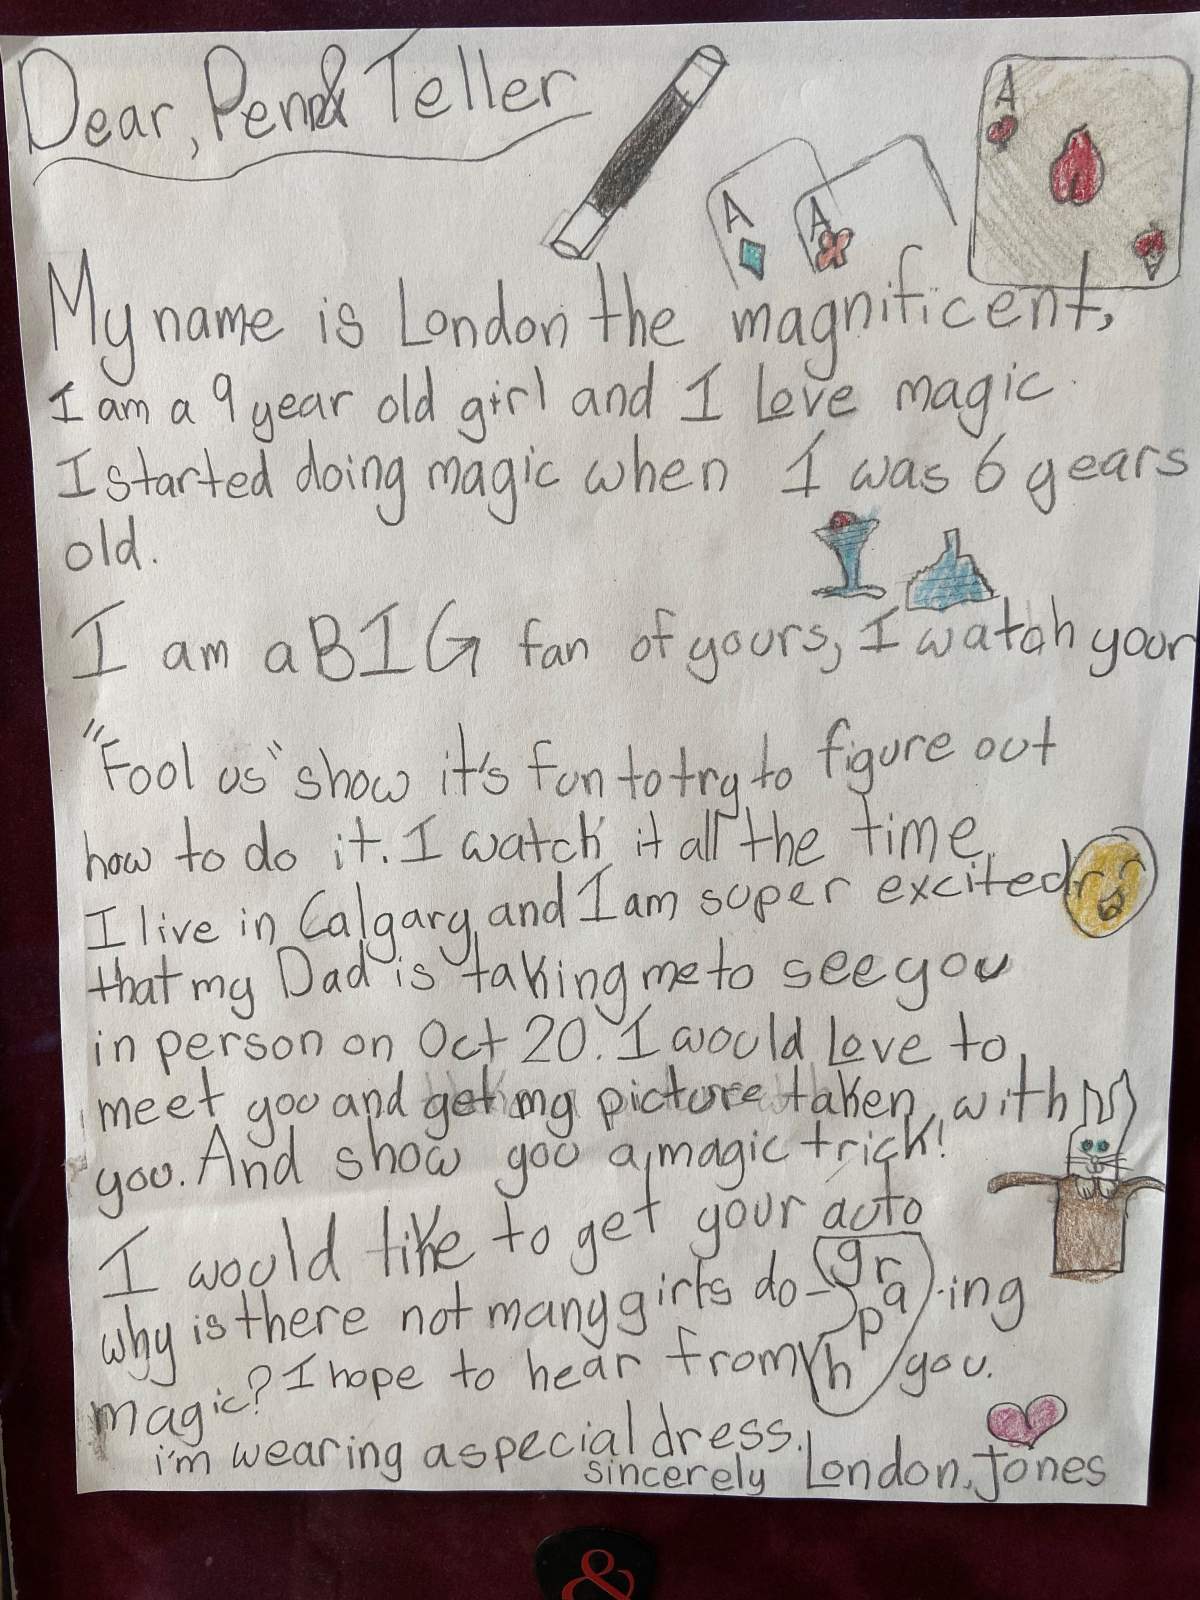 Dear, Penn & Teller
A
A
A
A
My name is London the magnificent,
I am a 9 year old girl and I Love magic.
I started doing magic when I was 6 years
old.
I am a BIG fan of yours, I watch your
"Fool us" show it's fun to try to figure out
how to do it. I watch it all the time.
I live in Calgary, and I am super excited
that my Dad is taking me to see you
in person on Oct 20. I would Love to
meet you and get my picture taken with
you. And show you a magic trick!
I would like to get your auto
gra
ph
why is there not many girls do-ing
magic? I hope to hear from you.
i'm wearing a special dress.
sincerely London, Jones
&